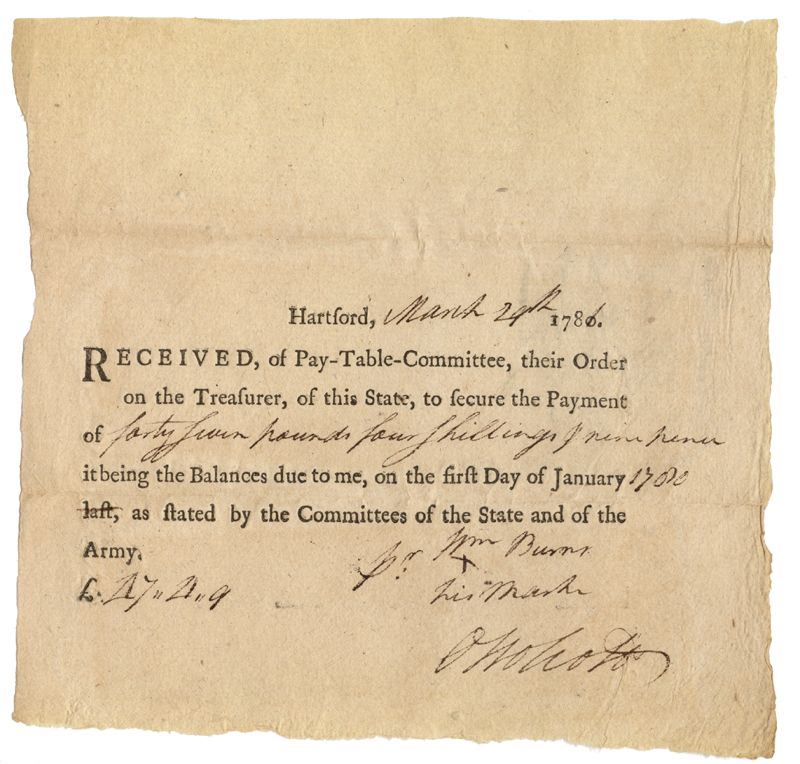 Hartford, March 29th 1786.
RECEIVED, of Pay-Table-Committee, their Order
on the Treaſurer, of this State, to ſecure the Payment
of forty ſeven pounds four ſhillings & nine pence
it being the Balances due to me, on the firſt Day of January 1780
laſt, as ſtated by the Committees of the State and of the
Army.
pr Wm Burns
X
£. 47„ 4„ 9
his Mark
O Wolcott